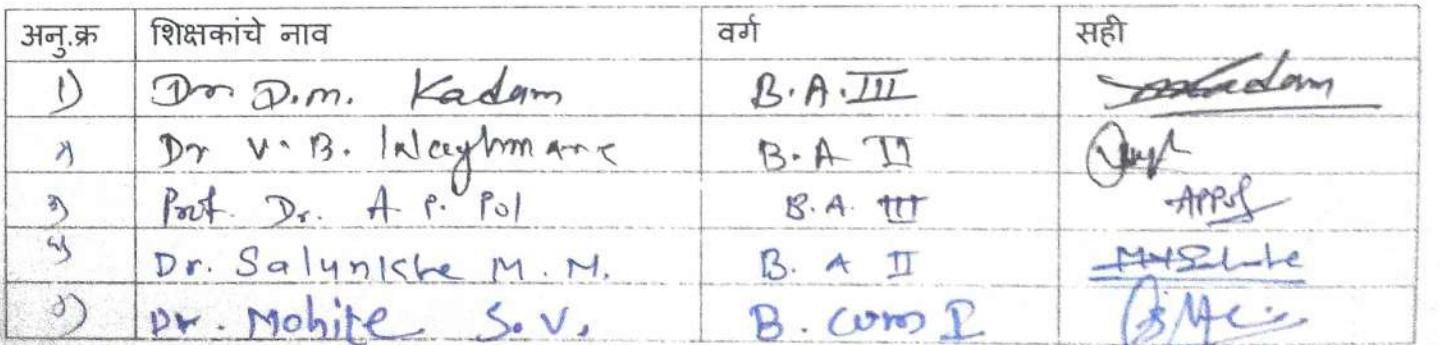 अनु.क्र शिक्षकांचे नाव वर्ग सही
1) Dr. D.M. Kadam B.A.III Kadam
२) Dr V.B. Waghmare B.A II
३) Prof. Dr. A P. Pol B.A. III APPol
४) Dr. Salunkhe M.M. B. A II
५) Dr. Mohite S.V. B. Com I